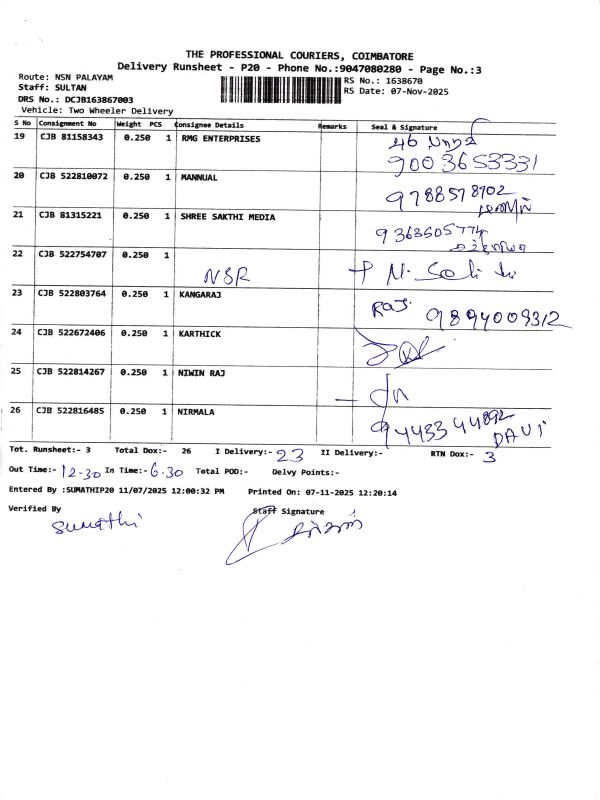 THE PROFESSIONAL COURIERS, COIMBATORE
Delivery Runsheet - P20 - Phone No.:9047080280 - Page No.:3
Route: NSN PALAYAM
RS No.: 1638670
Staff: SULTAN
RS Date: 07-Nov-2025
DRS No.: DCJB163867003
Vehicle: Two Wheeler Delivery
S No Consignment No Weight PCS Consignee Details Remarks Seal & Signature
19 CJB 81158343 0.250 1 RMG ENTERPRISES
9003653331
20 CJB 522810072 0.250 1 MANNUAL 9788578902
21 CJB 81315221 0.250 1 SHREE SAKTHI MEDIA
9363505774
22 CJB 522754707 0.250 1
NSR
23 CJB 522803764 0.250 1 KANGARAJ Raj. 9894009312
24 CJB 522672406 0.250 1 KARTHICK
25 CJB 522814267 0.250 1 NIWIN RAJ
26 CJB 522816485 0.250 1 NIRMALA 9443344892
DAVI
Tot. Runsheet:- 3 Total Dox:- 26 I Delivery:- 23 II Delivery:- RTN Dox:- 3
Out Time:- 12-30 In Time:- 6.30 Total POD:- Delvy Points:-
Entered By :SUMATHIP20 11/07/2025 12:00:32 PM Printed On: 07-11-2025 12:20:14
Verified By Staff Signature
Sumathi